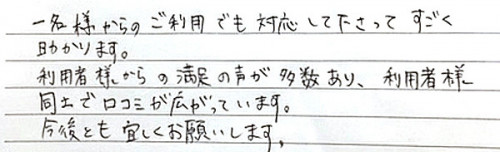 一名様からのご利用でも対応して下さってすごく
助かります。
利用者様からの満足の声が多数あり、利用者様
同士で口コミが広がっています。
今後とも宜しくお願いします。